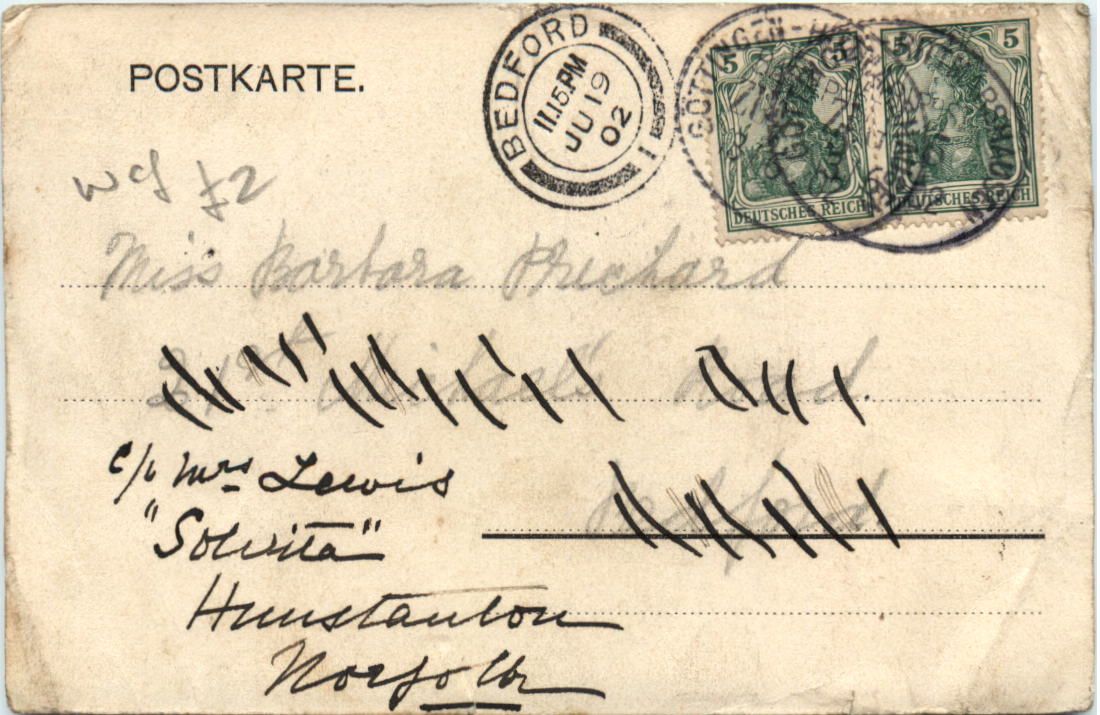 POSTKARTE.
BEDFORD
11.15.PM
JU 19
02
1
5 5 5 5
DEUTSCHES REICH
DEUTSCHES REICH
£2
Miss Barbara Prichard
Road.
c/o Mrs Lewis
"Solvita"
Hunstanton
Norfolk